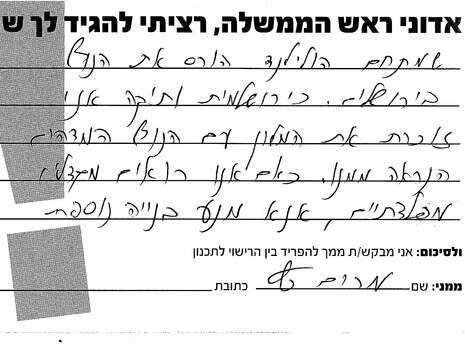 אדוני ראש הממשלה, רציתי להגיד לך ש
שמתחם הולילנד הורס את הנוף
בירושלים. כירושלמית ותיקה אני
זוכרת את המלון עם הנוף המדהים
הנראה ממנו. כאם אנו רואים
מפלצתיים, אנא מנע בנייה נוספת
ולסיכום: אני מבקש/ת ממך להפריד בין הרישוי לתכנון
ממני: שם מרים כ כתובת